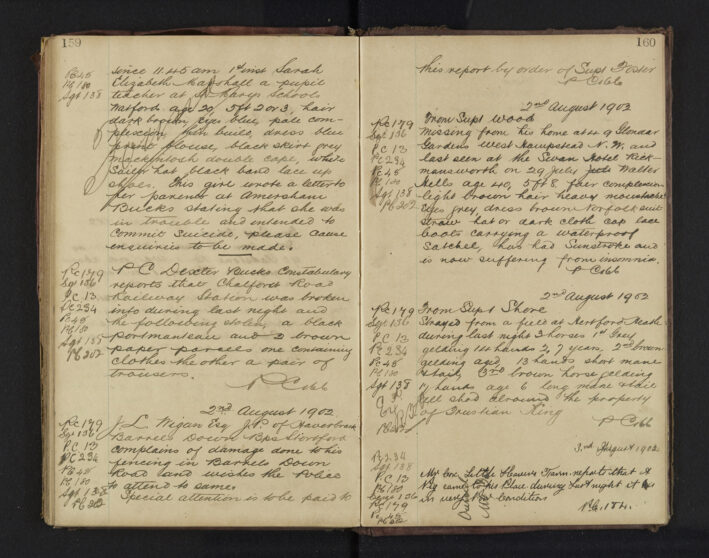 159
PC 45
PC 180
Sgt 138
since 11.45 am 1st inst Sarah
Elizabeth Marshall a pupil
teacher at St Marys Schools
Watford. age 20 5ft 2 or 3, hair
dark brown, eyes blue, pale com-
plexion, thin build, dress blue
print blouse, black skirt grey
mackintosh double cape, white
Sailor hat black band lace up
shoes. This girl wrote a letter to
her parents at Amersham
Bucks stating that she was
in trouble and intended to
commit suicide, please cause
enquiries to be made.
PC 179
Sgt 136
PC 13
PC 234
PC 45
PC 180
Sgt 138
PC 202
P.C. Dexter Bucks Constabulary
reports that Chalford Road
Railway Station was broken
into during last night and
the following stolen, a black
portmanteau and 2 brown
paper parcels one containing
clothes the other a pair of
trousers.
P Cobb
2nd August 1902
PC 179
Sgt 136
PC 13
PC 234
PC 45
PC 180
Sgt 138
PC 202
J. L. Wigan Esq J.P. of
Barrels Down Bps Stortford
complains of damage done to his
fencing in Barrels Down
Road and wishes the Police
to attend to same.
Special attention is to be paid to
160
this report by order of Supt Foster
P Cobb
2nd August 1902
PC 179
Sgt 136
PC 13
PC 234
PC 45
PC 180
Sgt 138
PC 202
From Supt Wood
Missing from his home at 49
Gardens West Hampstead N.W. and
last seen at the Swan Hotel Rick-
mansworth on 29 July Walter
Kells age 40, 5ft 8 fair complexion
light brown hair heavy moustache
eyes grey, dress brown Norfolk suit
straw hat or dark cloth cap lace
boots carrying a waterproof
Satchel, has had Sunstroke and
is now suffering from insomnia.
P Cobb
2nd August 1902
PC 179
Sgt 136
PC 13
PC 234
PC 45
PC 180
Sgt 138
From Supt Shore
Strayed from a field at Hertford Heath
during last night 3 horses 1st Grey
gelding 14 hands 2, 7 years, 2nd brown
gelding aged, 13 hands short mane
& tail, 3rd brown horse gelding
17 hands age 6 long mane & tail
all shod around the property
of Trustian King
P Cobb
3rd August 1902
PC 234
Sgt 138
PC 13
PC 180
PC 179
PC 45
PC 202
Mr Cox Little Farm. reports that A
Pig came to his Place during Last night it is
in very Poor Condition
PC 184.